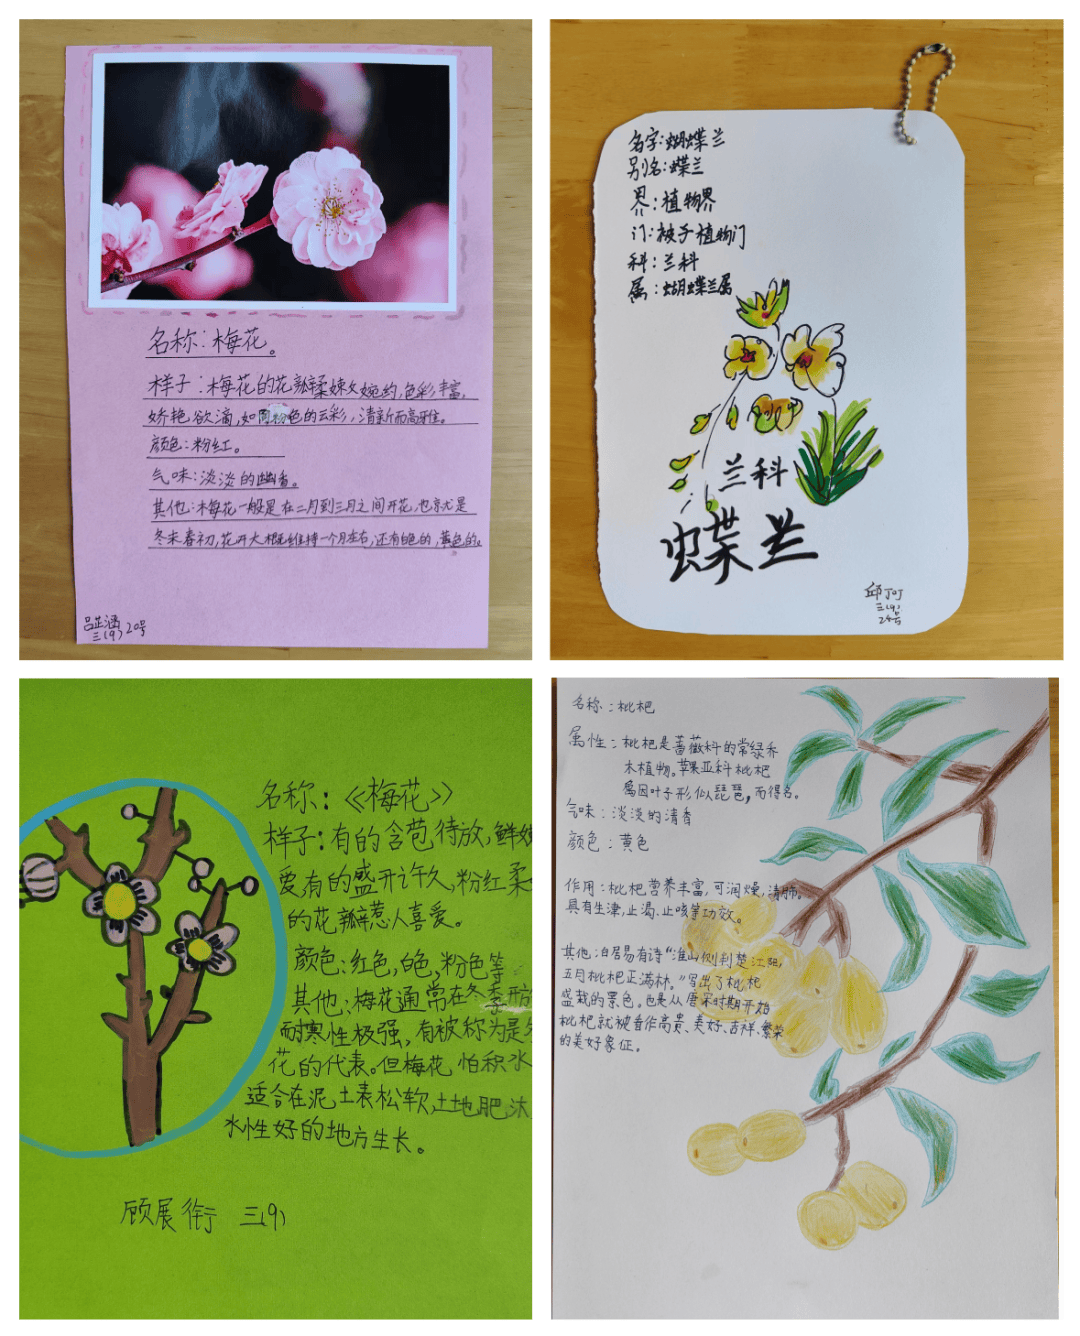 名称:梅花。
样子:梅花的花瓣柔婉约,色彩丰富,
娇艳欲滴,如同粉色的云彩,清新而高雅。
颜色:粉红。
气味:淡淡的幽香。
其他:梅花一般是在二月到三月之间开花,也就是
冬末春初,花开大概维持一个月左右,还有白色的,黄色的。
吕芷涵
三(9)20号
名字:蝴蝶兰
别名:蝶兰
界:植物界
门:被子植物门
科:兰科
属:蝴蝶兰属
兰科
蝶兰
邱
三(9)
24号
名称:《梅花》
样子:有的含苞待放,鲜
爱,有的盛开许久,粉红柔
的花瓣惹人喜爱。
颜色:红色,白色,粉色等
其他:梅花通常在冬季开
而寒性极强,有被称为是
花的代表。但梅花,怕积水
适合在泥土表松软,土地肥沃
水性好的地方生长。
顾展衔 三(9)
名称:枇杷
属性:枇杷是蔷薇科的常绿乔
木植物。苹果亚科枇杷
属因叶子形似琵琶,而得名。
气味:淡淡的清香
颜色:黄色
作用:枇杷营养丰富,可润燥,清肺。
具有生津,止渴、止咳等功效。
其他:白居易有诗“淮山侧畔楚江阴,
五月枇杷正满林。”写出了枇杷
盛栽的景色。也是从唐宋时期开始
枇杷就被看作高贵、美好、吉祥、繁荣
的美好象征。